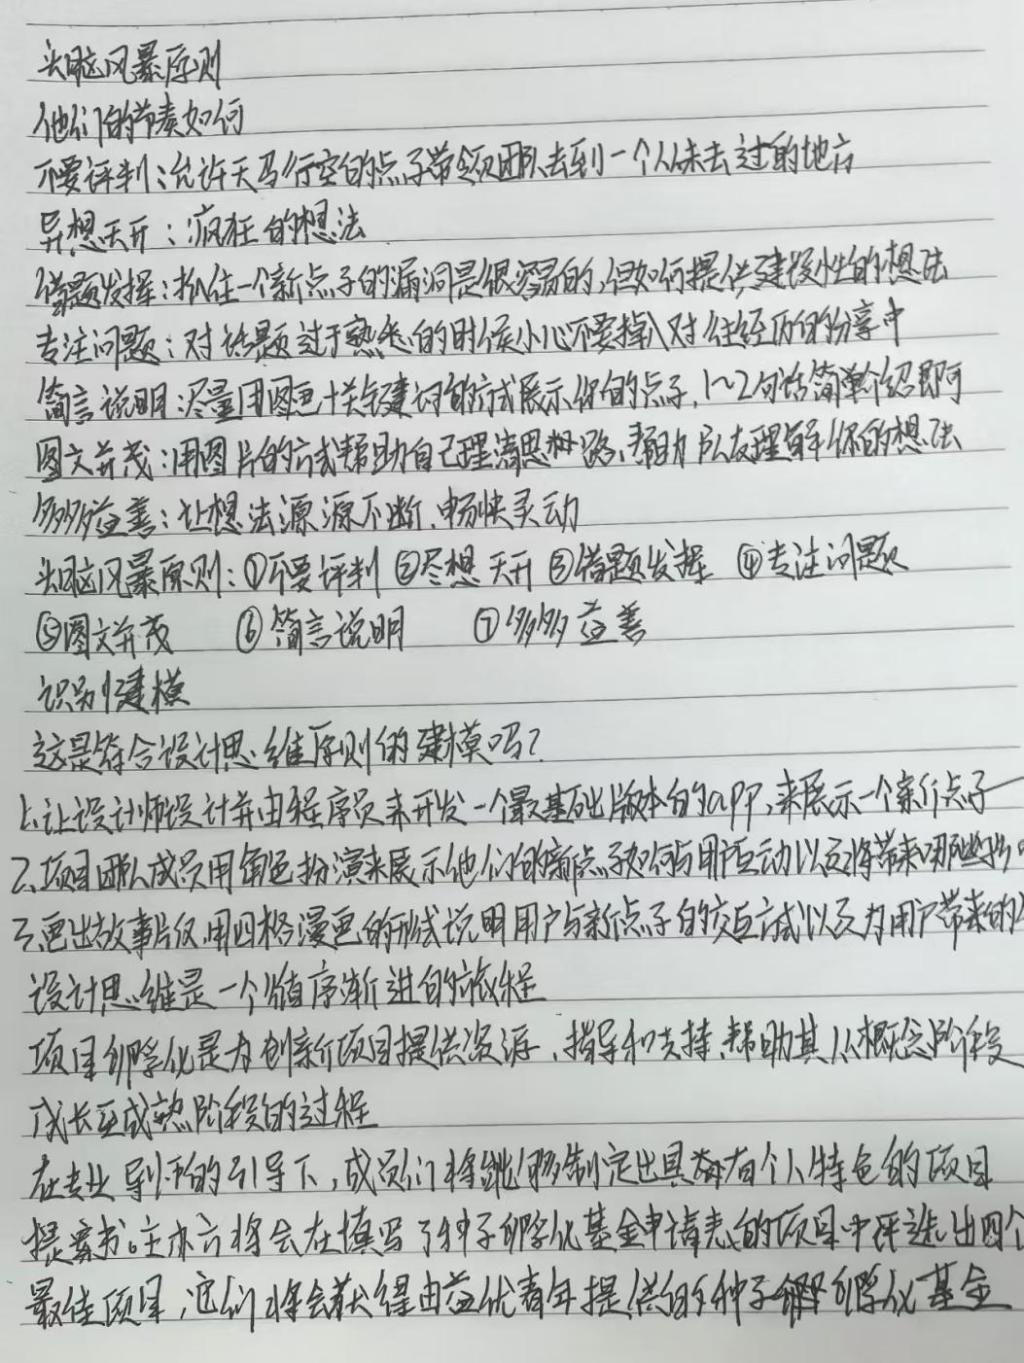 头脑风暴原则
他们的节奏如何
不要评判:允许天马行空的点子带领团队去到一个从未去过的地方
异想天开:疯狂的想法
借题发挥:抓住一个新点子的漏洞是很容易的,但如何提供建设性的想法
专注问题:对话题过于熟悉的时候小心不要掉入对往经历的分享中
简言说明:尽量用图画+关键词的方式展示你的点子,1~2句话简单介绍即可
图文并茂:用图片的方式帮助自己理清思路、帮助队友理解你的想法
多多益善:让想法源源不断、畅快灵动
头脑风暴原则:①不要评判 ②异想天开 ③借题发挥 ④专注问题
⑤图文并茂 ⑥简言说明 ⑦多多益善
识别建模
这是符合设计思维原则的建模吗?
1、让设计师设计并由程序员来开发一个最基础版本的app,来展示一个新点子
2、项目团队成员用角色扮演来展示他们的新点子如何与用户互动以及将带来哪些
3、画出故事片仅,用四格漫画的形式说明用户与新点子的交互方式以及为用户带来的
设计思维是一个循序渐进的旅程
项目孵化是为创新项目提供资源、指导和支持、帮助其从概念阶段
成长至成熟阶段的过程
在专业导师的引导下,成员们将能够制定出具有个人特色的项目
提案书。主办方将会在填写了种子孵化基金申请表的项目中评选出四个
最佳项目,它们将会获得由益优青年提供的种子孵化基金